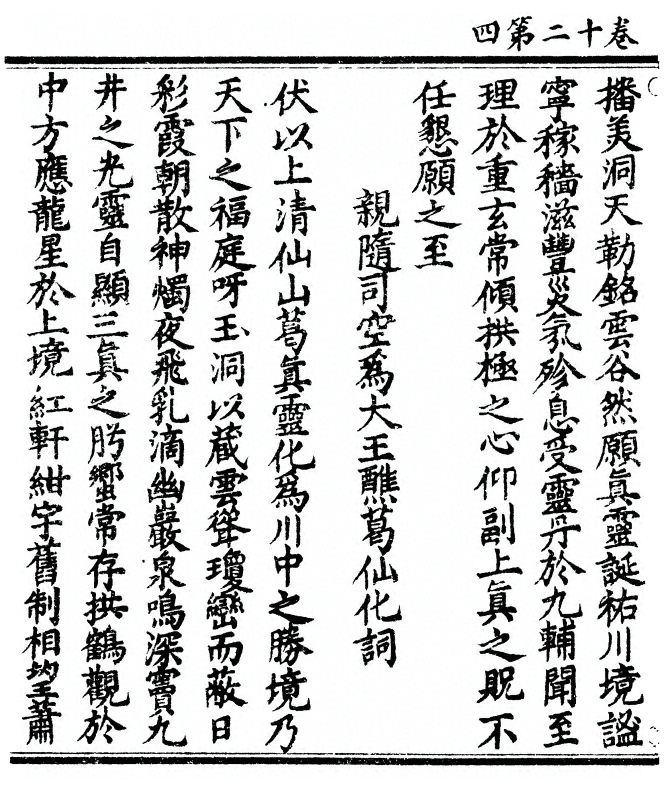 卷十二第四
播美洞天勒銘雲谷然願真靈誕祐川境謐
寧稼穡滋豐災氛殄息受靈丹於九輔聞至
理於重玄常傾拱極之心仰副上真之貺不
任懇願之至
親隨司空為大王醮葛仙化詞
伏以上清仙山葛真靈化為川中之勝境乃
天下之福庭呀玉洞以藏雲聳瓊巒而蔽日
彩霞朝散神燭夜飛乳滴幽巖泉鳴深竇九
井之光靈自顯三真之肹蠁常存拱鶴觀於
中方應龍星於上境紅軒紺宇舊制相望蕭